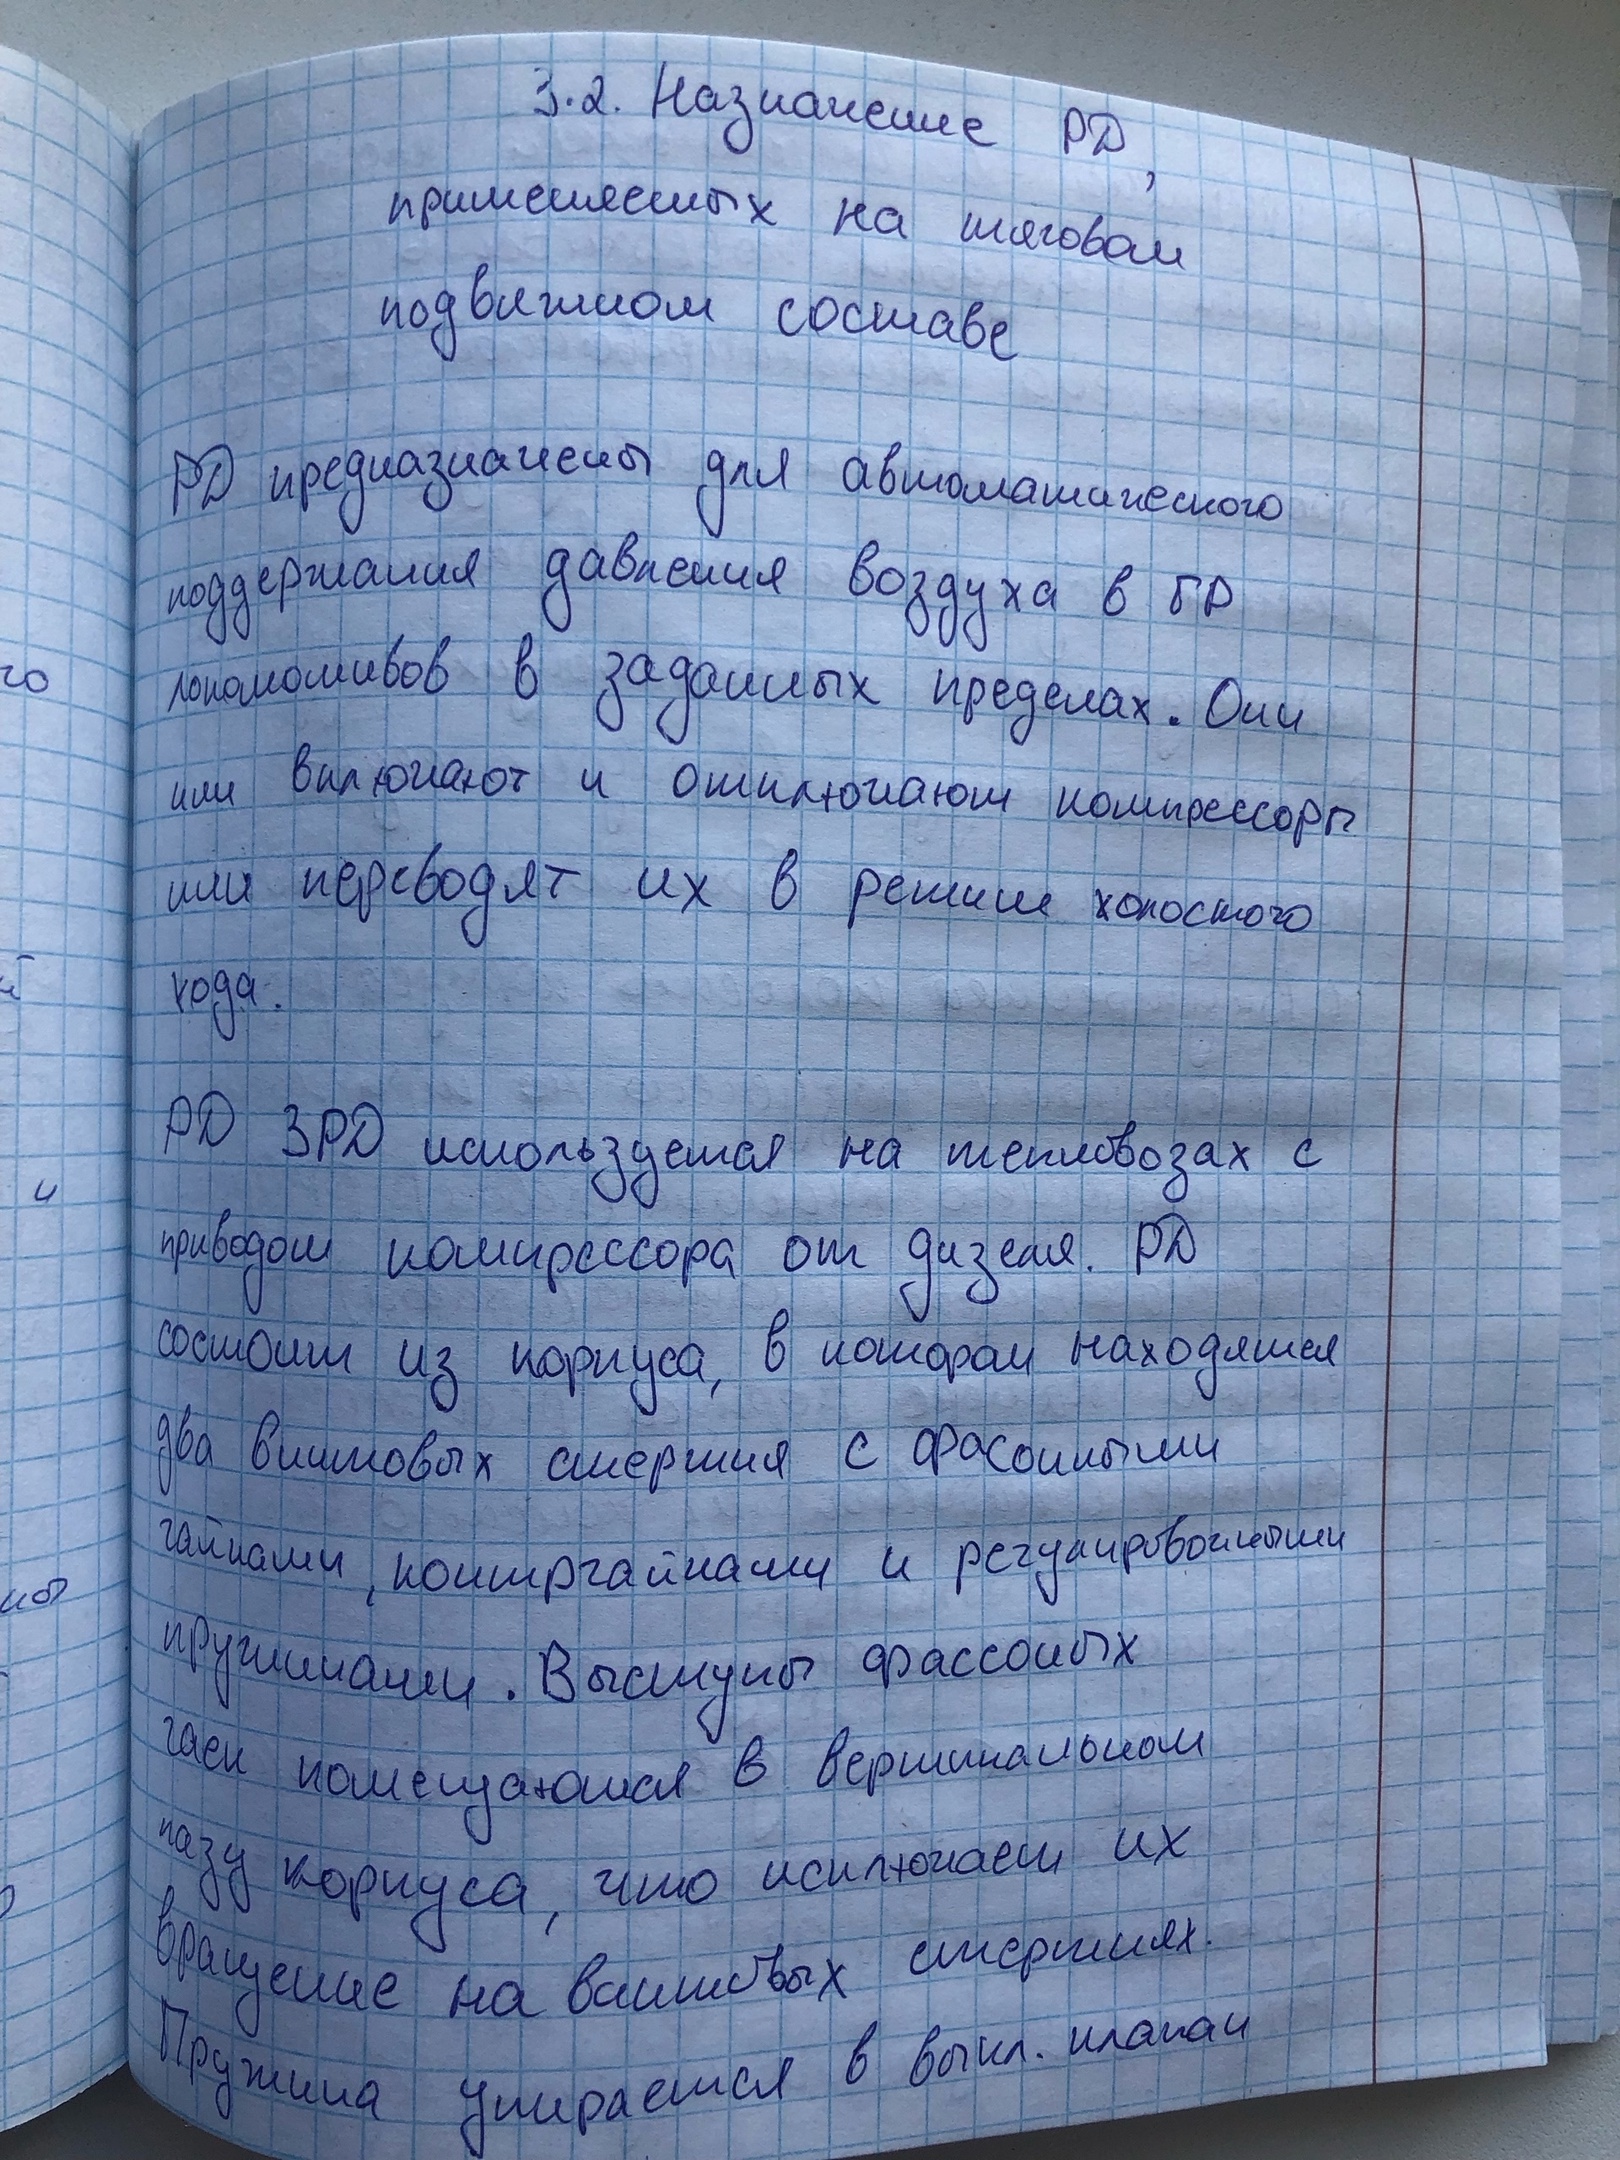 3.2. Назначение РД,
применяемых на тяговом
подвижном составе
РД предназначены для автоматического
поддержания давления воздуха в ГР
локомотивов в заданных пределах. Они
или включают и отключают компрессоры
или переводят их в режим холостого
хода.
РД 3РД используется на тепловозах с
приводом компрессора от дизеля. РД
состоит из корпуса, в котором находятся
два винтовых стержня с фасонными
гайками, контргайками и регулировочными
пружинами. Выступы фассоных
гаек помещаются в вертикальном
пазу корпуса, что исключает их
вращение на винтовых стержнях.
Пружина упирается в выкл. клапан
го
й
и
ны